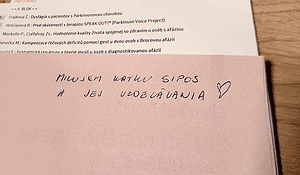 II. BLOK
Frajková Ž.: Dysfágia u pacientov s Parkinsonovou chorobou
Prvé skúsenosti s terapiou SPEAK OUT!® (Parkinson Voice Project)
Hodnotenie kvality života spojenej so zdravím u osôb s afáziou
Kompenzácie rečových deficitů pomocí gest u dvou osob s Brocovou afázií
a teorie mysli u osob s diagnostikovanou afázií
MILUJEM KATKU SIPOS
A JEJ VZDELÁVANIA ♡